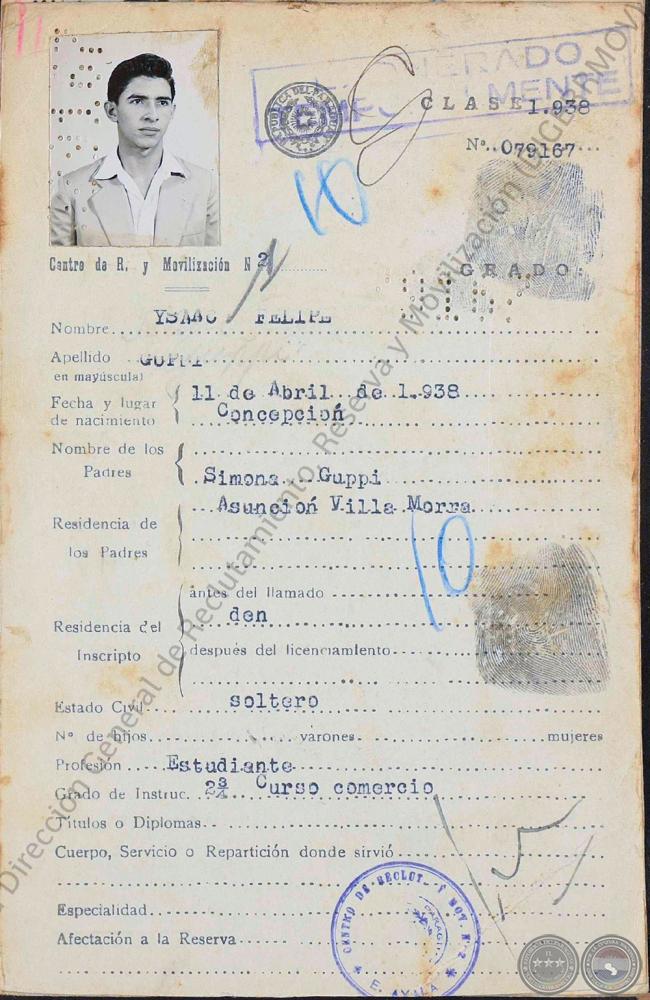 CLASE 1.938
REPUBLICA DEL PARAGUAY
Nº. 079167
Centro de R. y Movilización N 2
GRADO:
Nombre YSAAC FELIPE
Apellido GUPPI
en mayúscula)
Fecha y lugar de nacimiento 11 de Abril de 1.938
Concepción
Nombre de los Padres
Simona Guppi
Residencia de los Padres Asunción Villa Morra
Residencia del Inscripto
ántes del llamado
den
después del licenciamiento
Estado Civil soltero
Nº de hijos varones mujeres
Profesión Estudiante
Grado de Instruc. Curso comercio
Títulos o Diplomas
Cuerpo, Servicio o Repartición donde sirvió
Especialidad
Afectación a la Reserva
CENTRO DE RECLUT. Y MOV. Nº 2
E. AYALA
10
10
Dirección General de Reclutamiento, Reserva y Movilización